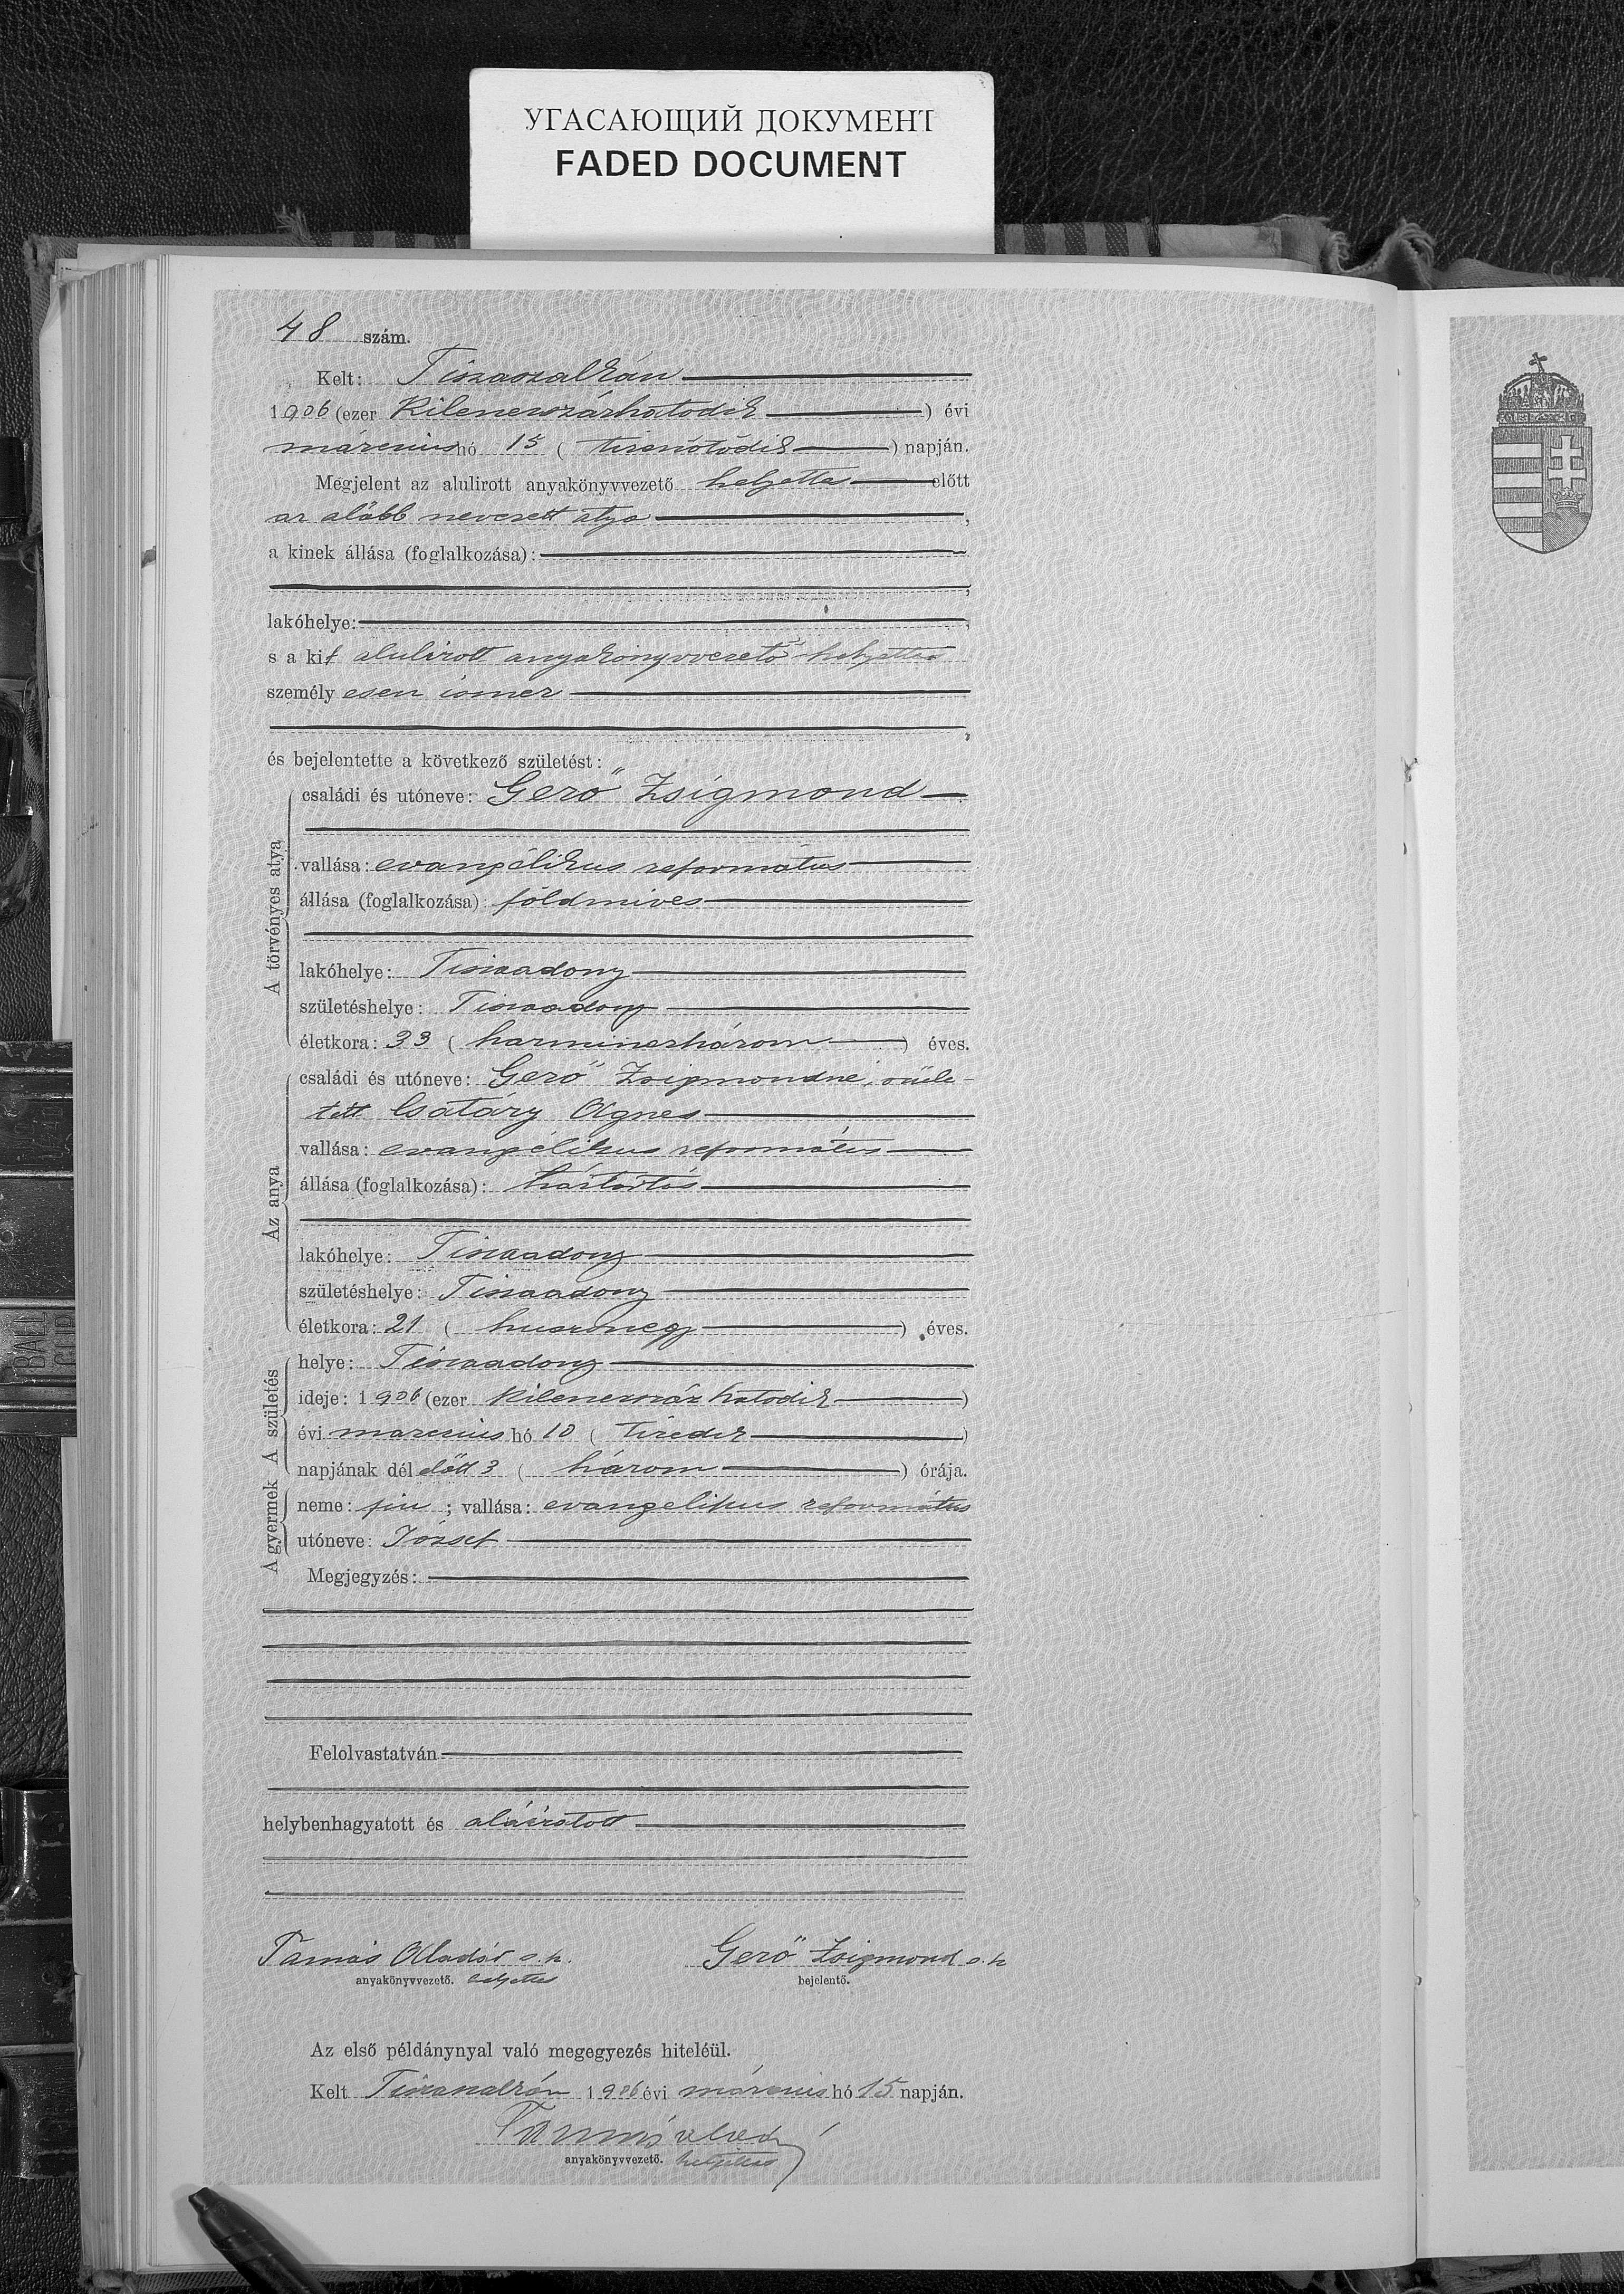 УГАСАЮЩИЙ ДОКУМЕНТ
FADED DOCUMENT
48 szám.
Kelt: Tiszaszalkán
1906 (ezer kilencszázhatodik) évi
márcziushó 15 (tizenötödik) napján.
Megjelent az alulirott anyakönyvvezető helyettes előtt
az alább nevezett atya,
a kinek állása (foglalkozása):
lakóhelye:
s a kit alulirott anyakönyvvezető helyettes
személyesen ismer
és bejelentette a következő születést:
A törvényes atya
családi és utóneve: Gerő Zsigmond
vallása: evangélikus református
állása (foglalkozása): földmives
lakóhelye: Tiszaadony
születéshelye: Tiszaadony
életkora: 33 (harminczhárom) éves.
Az anya
családi és utóneve: Gerő Zsigmondné, szüle-
tett Csatáry Ágnes
vallása: evangélikus református
állása (foglalkozása): háztartás
lakóhelye: Tiszaadony
születéshelye: Tiszaadony
életkora: 21 (huszonegy) éves.
A születés
helye: Tiszaadony
ideje: 1906 (ezer kilenczszáz hatodik)
évi marczius hó 10 (tizedik)
napjának délelőtt 3 (három) órája.
A gyermek
neme: fiu; vallása: evangelikus református
utóneve: József
Megjegyzés:
Felolvastatván
helybenhagyatott és aláiratott
Tamás Aladár s. k. Gerő Zsigmond s. k.
anyakönyvvezető. helyettes bejelentő.
Az első példánynyal való megegyezés hiteléül.
Kelt Tiszaszalkán 1906 évi márczius hó 15 napján.
Tamás Aladár
anyakönyvvezető. helyettes
BALL
CLIP